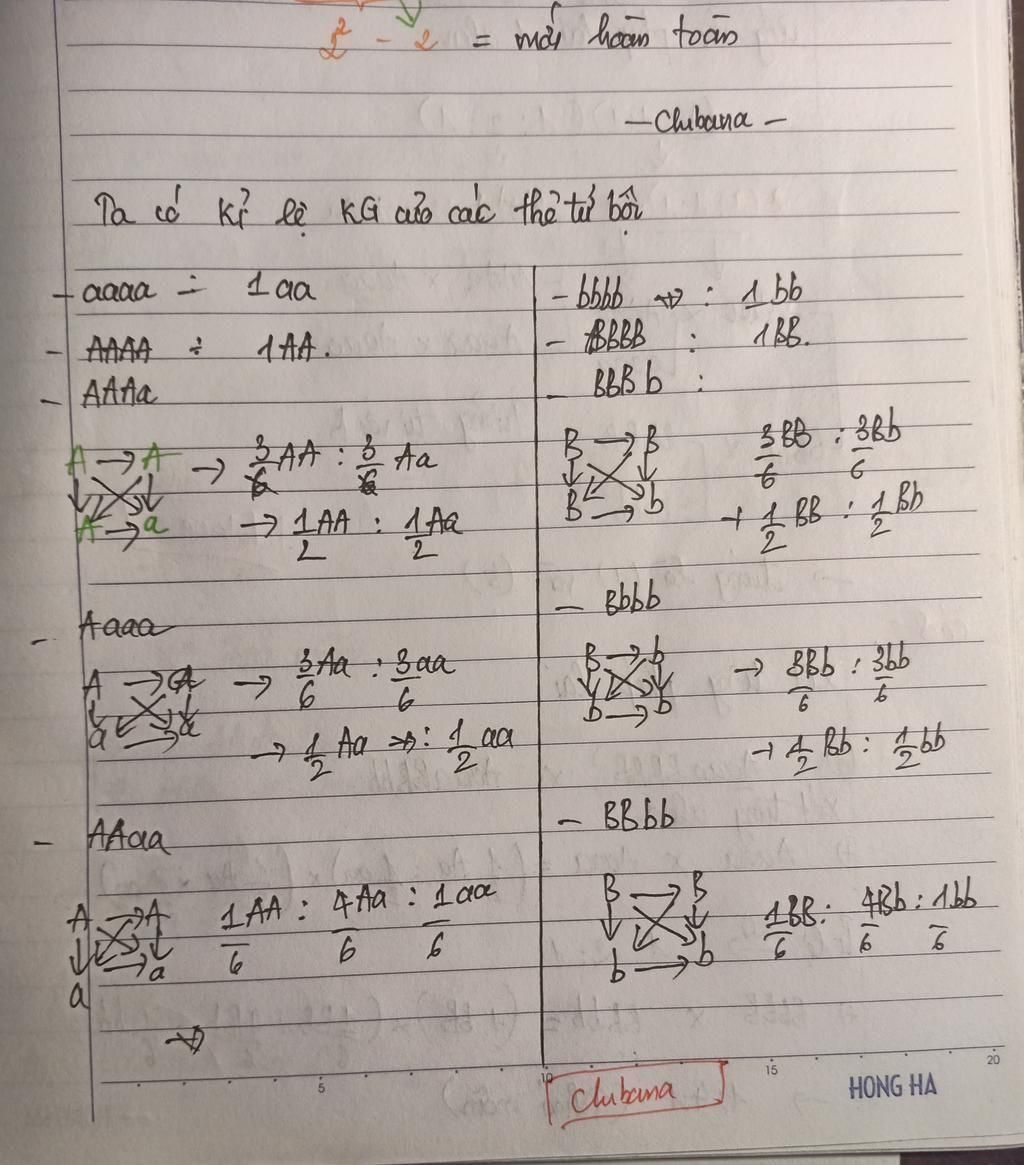 2² - 2 = mới hoàn toàn
- Chubana -
Ta có Kỉ lệ KG của các thể tứ bội
- aaaa ÷ 1aa
- AAAA ÷ 1AA.
- AAAa
A → A → 3/6 AA : 3/6 Aa
A → a → 1/2 AA : 1/2 Aa
- Aaaa
A → a → 3/6 Aa : 3/6 aa
a → a → 1/2 Aa : 1/2 aa
- AAaa
A → A 1/6 AA : 4/6 Aa : 1/6 aa
a → a
- bbbb : 1bb
- BBBB : 1BB.
- BBBb :
B → B 3/6 BB : 3/6 Bb
B → b → 1/2 BB : 1/2 Bb
- Bbbb
B → b → 3/6 Bb : 3/6 bb
b → b → 1/2 Bb : 1/2 bb
- BBbb
B → B 1/6 BB : 4/6 Bb : 1/6 bb
b → b
Chubana
5 10 15 20
HONG HA